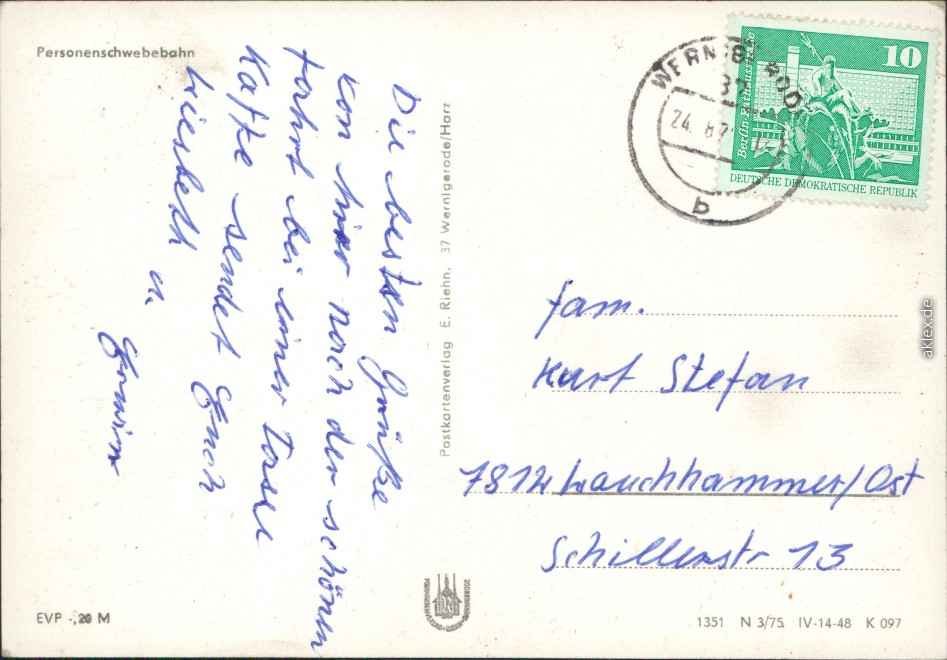 Personenschwebebahn
Die besten Grüße
von hier nach der schönen
fahrt bei einer Tasse
Kaffe sendet Euch
Liesbeth u.
Erwin
EVP -,20 M
Postkartenverlag E. Riehn, 37 Wernigerode/Harz
10
Berlin, Rathausstraße
DEUTSCHE DEMOKRATISCHE REPUBLIK
WERNIGERODE
37
24.
b
fam.
Kurt Stefan
7812 Lauchhammer/Ost
Schillerstr 13
1351 N 3/75 IV-14-48 K 097
akiex.de